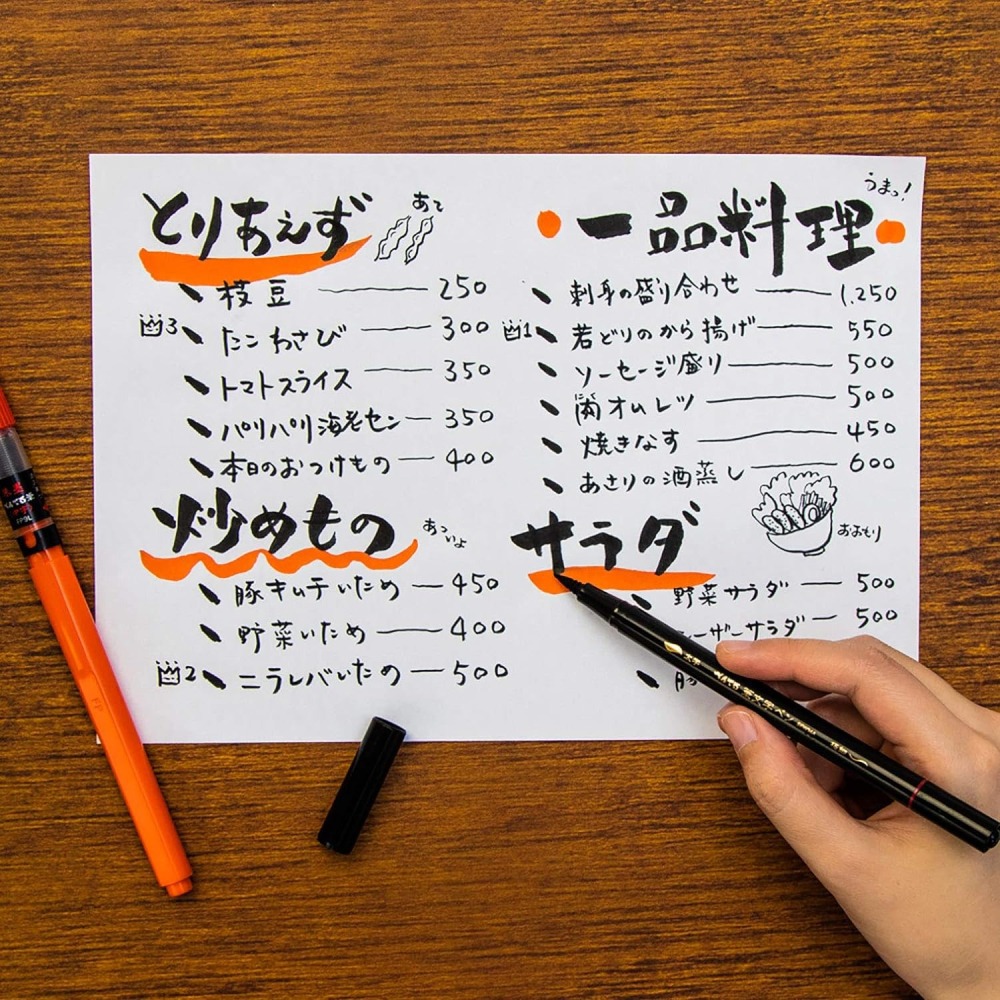 とりあえず
あて
枝豆 250
3 たこわさび 300
トマトスライス 350
パリパリ海老セン 350
本日のおつけもの 400
炒めもの
あっついよ
豚キムチいため 450
野菜いため 400
2 ニラレバいため 500
一品料理
うまっ!
刺身の盛り合わせ 1,250
1 若どりのから揚げ 550
ソーセージ盛り 500
オムレツ 500
焼きなす 450
あさりの酒蒸し 600
サラダ
おおもり
野菜サラダ 500
ーザーサラダ 500
豚